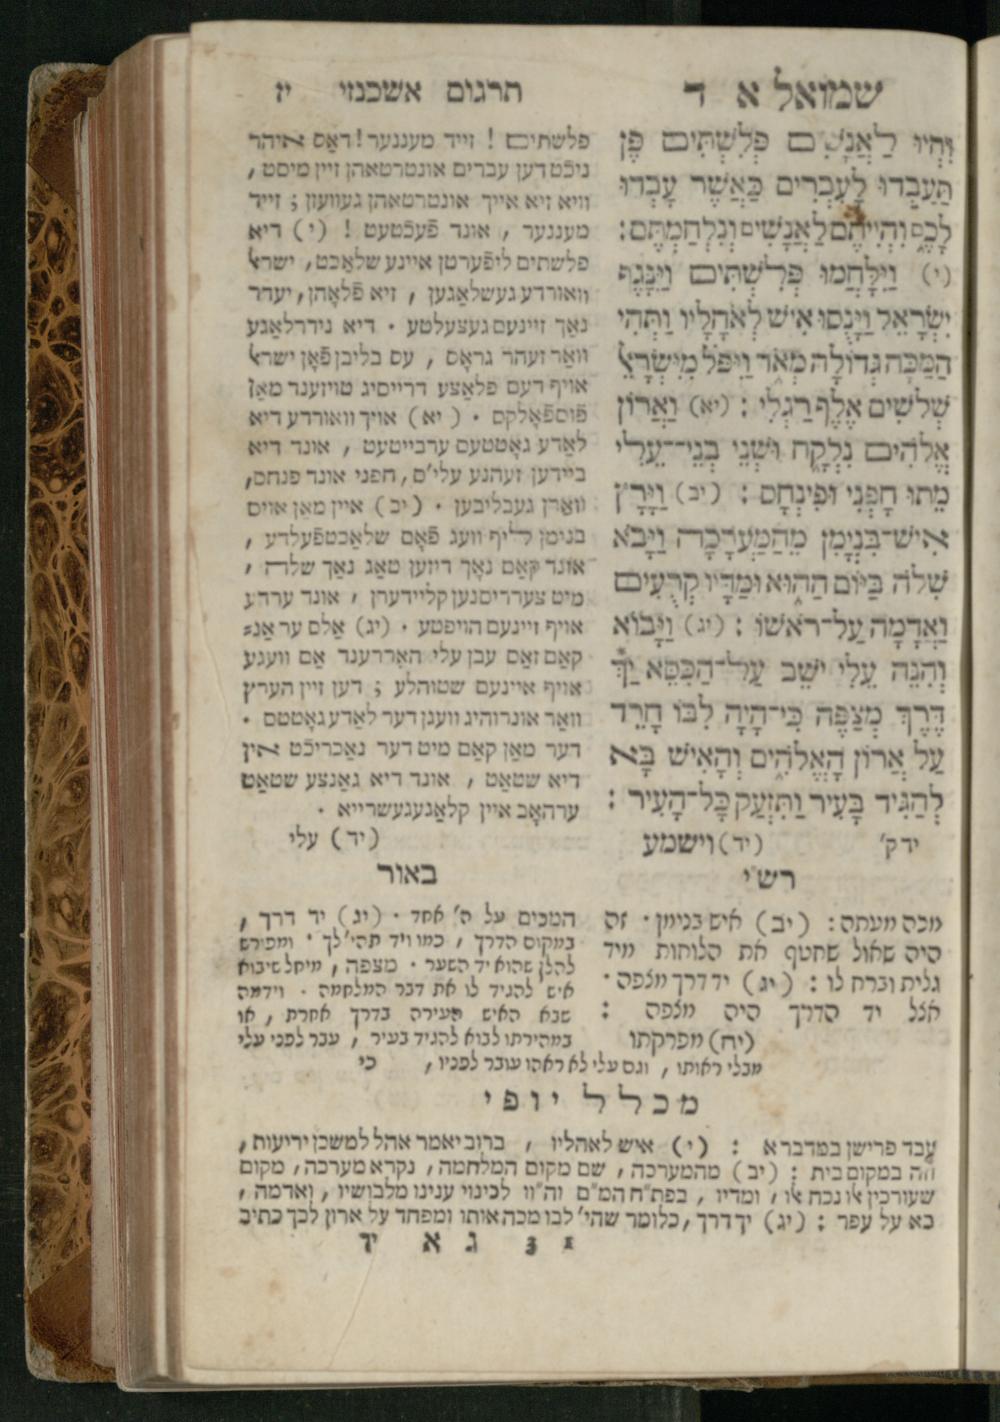 שמואל א ד
תרגום אשכנזי יז
וִהְיוּ לַאֲנָשִׁים פְּלִשְׁתִּים פֶּן
תַּעַבְדוּ לָעִבְרִים כַּאֲשֶׁר עָבְדוּ
לָכֶם וִהְיִיתֶם לַאֲנָשִׁים וְנִלְחַמְתֶּם:
(י) וַיִּלָּחֲמוּ פְלִשְׁתִּים וַיִּנָּגֶף
יִשְׂרָאֵל וַיָּנֻסוּ אִישׁ לְאֹהָלָיו וַתְּהִי
הַמַּכָּה גְּדוֹלָה מְאֹד וַיִּפֹּל מִיִּשְׂרָאֵל
שְׁלֹשִׁים אֶלֶף רַגְלִי : (יא) וַאֲרוֹן
אֱלֹהִים נִלְקָח וּשְׁנֵי בְנֵי־עֵלִי
מֵתוּ חָפְנִי וּפִינְחָס : (יב) וַיָּרָץ
אִישׁ־בִּנְיָמִן מֵהַמַּעֲרָכָה וַיָּבֹא
שִׁלֹה בַּיּוֹם הַהוּא וּמַדָּיו קְרֻעִים
וַאֲדָמָה עַל־רֹאשׁוֹ : (יג) וַיָּבוֹא
וְהִנֵּה עֵלִי יֹשֵׁב עַל־הַכִּסֵּא יַךְ
דֶּרֶךְ מְצַפֶּה כִּי־הָיָה לִבּוֹ חָרֵד
עַל אֲרוֹן הָאֱלֹהִים וְהָאִישׁ בָּא
לְהַגִּיד בָּעִיר וַתִּזְעַק כָּל־הָעִיר :
יד ק' (יד) וישמע
פלשתים ! זייד מעננער ! דאַס איהר
ניכֿט דען עברים אונטרטאהן זיין מיסט ,
וויא זיא אייך אונטרטאהן געוועזן ; זייד
מעננער , אונד פֿעכֿטעט ! (י) דיא
פלשתים ליפֿערטן איינע שלאַכט, ישראל
וואורדע געשלאַגען , זיא פֿלאָהן, יעדר
נאַך זיינעם געצעלטע . דיא נידרלאַגע
וואַר זעהר גראָס , עס בליבן פֿאָן ישראל
אויף דעם פלאַצע דרייסיג טויזענד מאַן
פֿוספֿאָלקס . (יא) אויך וואורדע דיא
לאַדע גאָטטעס ערבייטעט , אונד דיא
ביידען זעהנע עלי'ס, חפני אונד פנחס,
וואַרן געבליבען . (יב) איין מאַן אויס
בנימן ליף וועג פֿאָם שלאַכטפֿעלדע ,
אונד קאַם נאָך דיזען טאַג נאַך שלה ,
מיט צערריסנען קליידערן , אונד ערדע
אויף זיינעם הויפטע . (יג) אַלס ער אַנ=
קאַם זאַס עבן עלי האַררענד אַם וועגע
אויף איינעם שטוהלע ; דען זיין הערץ
וואַר אונרוהיג וועגן דער לאַדע גאָטטס .
דער מאַן קאַם מיט דער נאַכריכֿט אין
דיא שטאַט , אונד דיא גאַנצע שטאַט
ערהאָב איין קלאַגעגעשרייא .
(יד) עלי
רש"י
מכה מעתה: (יב) איש בנימן . זה
היה שאול שחטף את הלוחות מיד
גלית וברח לו : (יג) יד דרך מצפה .
אצל יד הדרך היה מצפה :
(יח) מפרקתו
באור
הסכים על ה' אחד . (יג) יד דרך ,
במקום הדרך , כמו ויד תהי' לך . ומפורש
להלן שהוא יד השער . מצפה , מיחל שיבוא
איש להגיד לו את דבר המלחמה . וידמה
שבא האיש העירה בדרך אחרת , או
במהירתו לבוא להגיד בעיר , עבר לפני עלי
מבלי ראותו , וגם עלי לא ראהו עובר לפניו , כי
מכלל יופי
עבד פרישן במדבר א : (י) איש לאהליו , ברוב יאמר אהל למשכן יריעות,
וזה במקום בית : (יב) מהמערכה , שם מקום המלחמה , נקרא מערכה, מקום
שעורכין זו נכח זו , ומדיו , בפת"ח המ"ם וה"וו לכינוי ענינו מלבושיו , ואדמה ,
בא על עפר : (יג) יך דרך , כלומר שהי' לבו מכה אותו ומפחד על ארון לכך כתיב
1 3 ג א יד